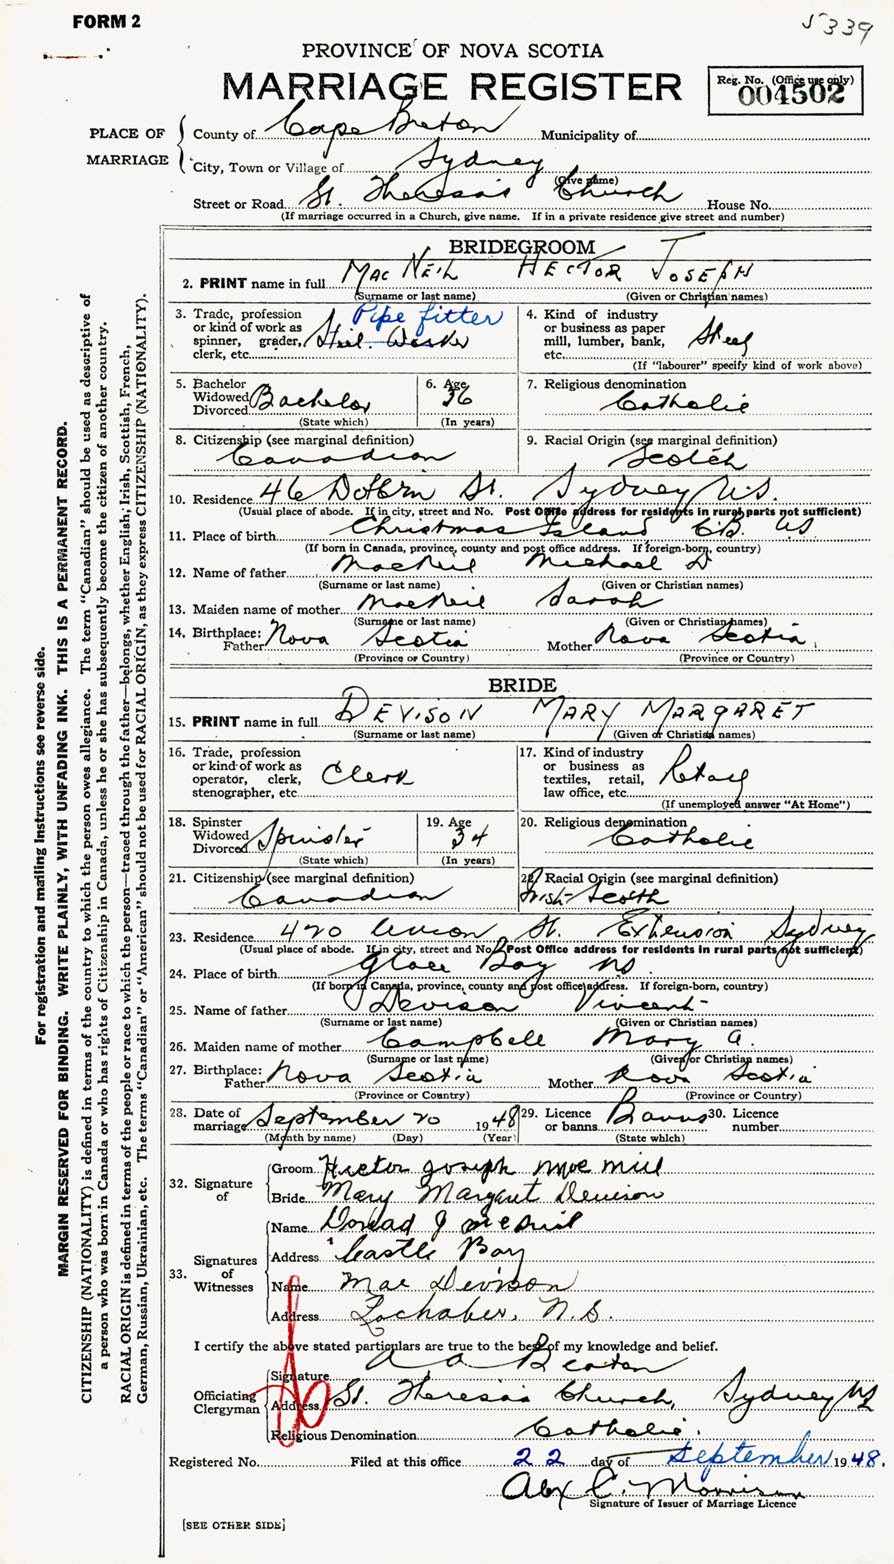 FORM 2
5339
PROVINCE OF NOVA SCOTIA
MARRIAGE REGISTER
Reg. No. (Office use only)
004502
PLACE OF MARRIAGE
County of Cape Breton Municipality of
City, Town or Village of Sydney
(Give name)
Street or Road St. Theresa's Church House No.
(If marriage occurred in a Church, give name. If in a private residence give street and number)
BRIDEGROOM
2. PRINT name in full MAC NEIL HECTOR JOSEPH
(Surname or last name) (Given or Christian names)
3. Trade, profession or kind of work as spinner, grader, clerk, etc. Pipe fitter Steel Worker
4. Kind of industry or business as paper mill, lumber, bank, etc. Steel
(If "labourer" specify kind of work above)
5. Bachelor Widowed Divorced Bachelor
(State which)
6. Age 36
(In years)
7. Religious denomination
Catholic
8. Citizenship (see marginal definition)
Canadian
9. Racial Origin (see marginal definition)
Scotch
10. Residence 46 St. Sydney N.S.
(Usual place of abode. If in city, street and No. Post Office address for residents in rural parts not sufficient)
11. Place of birth Christmas Island C.B. NS
(If born in Canada, province, county and post office address. If foreign-born, country)
12. Name of father MacNeil Michael D
(Surname or last name) (Given or Christian names)
13. Maiden name of mother MacNeil Sarah
(Surname or last name) (Given or Christian names)
14. Birthplace: Father Nova Scotia Mother Nova Scotia
(Province or Country) (Province or Country)
BRIDE
15. PRINT name in full DEVISON MARY MARGARET
(Surname or last name) (Given or Christian names)
16. Trade, profession or kind of work as operator, clerk, stenographer, etc Clerk
17. Kind of industry or business as textiles, retail, law office, etc. Retail
(If unemployed answer "At Home")
18. Spinster Widowed Divorced Spinster
(State which)
19. Age 34
(In years)
20. Religious denomination
Catholic
21. Citizenship (see marginal definition)
Canadian
22. Racial Origin (see marginal definition)
Irish-Scotch
23. Residence 420 Union St. Extension Sydney
(Usual place of abode. If in city, street and No. Post Office address for residents in rural parts not sufficient)
24. Place of birth Glace Bay NS
(If born in Canada, province, county and post office address. If foreign-born, country)
25. Name of father Devison Vincent
(Surname or last name) (Given or Christian names)
26. Maiden name of mother Campbell Mary A.
(Surname or last name) (Given or Christian names)
27. Birthplace: Father Nova Scotia Mother Nova Scotia
(Province or Country) (Province or Country)
28. Date of marriage September 20 1948
(Month by name) (Day) (Year)
29. Licence or banns Banns
(State which)
30. Licence number
32. Signature of
Groom Hector Joseph Mac Neil
Bride Mary Margaret Devison
33. Signatures of Witnesses
Name Donald J McNeil
Address Castle Bay
Name Mae Devison
Address Lochaber, N.S.
I certify the above stated particulars are true to the best of my knowledge and belief.
Officiating Clergyman
Signature A A Beaton
Address St. Theresa's Church, Sydney NS
Religious Denomination Catholic.
Registered No. Filed at this office 22 day of September 1948.
Alex C. Morrison
Signature of Issuer of Marriage Licence
[SEE OTHER SIDE]
For registration and mailing instructions see reverse side.
MARGIN RESERVED FOR BINDING. WRITE PLAINLY, WITH UNFADING INK. THIS IS A PERMANENT RECORD.
CITIZENSHIP (NATIONALITY) is defined in terms of the country to which the person owes allegiance. The term "Canadian" should be used as descriptive of
a person who was born in Canada or who has rights of Citizenship in Canada, unless he or she has subsequently become the citizen of another country.
RACIAL ORIGIN is defined in terms of the people or race to which the person—traced through the father—belongs, whether English, Irish, Scottish, French,
German, Russian, Ukrainian, etc. The terms "Canadian" or "American" should not be used for RACIAL ORIGIN, as they express CITIZENSHIP (NATIONALITY).